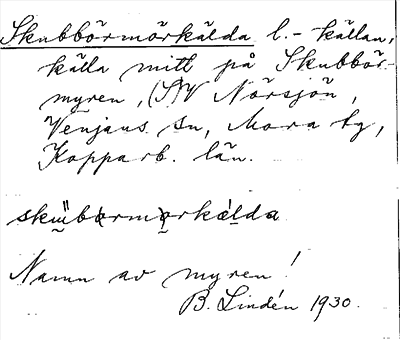 Skubbörmörkälda l. -källan,
källa mitt på Skubbör-
myren, (S)V Nörsjön,
Venjans sn, Mora tg,
Kopparb. län.
Namn av myren!
B. Lindén 1930.